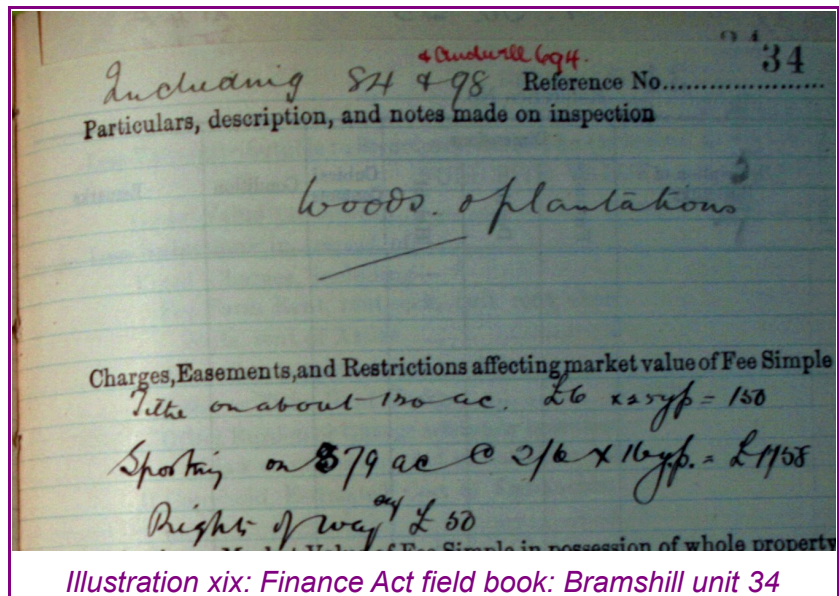 & 694.
34
Including 84 & 98 Reference No.....................
Particulars, description, and notes made on inspection
Woods & plantations
Charges, Easements, and Restrictions affecting market value of Fee Simple
Tithe on about ac. £6 x 25yp = 150
Sporting on 879 ac @ 2/6 x 16y.p. = £1758
Rights of way say £50
Market Value of Fee Simple in possession of whole property
Illustration xix: Finance Act field book: Bramshill unit 34